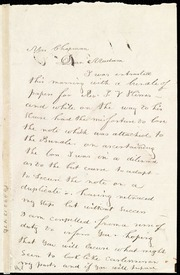 Mrs Chapman
Dear Madam
I was entrusted
this morning with a bundle of
papers for Rev. J. V. Himes
and while on the way to his
House had the misfortune to lose
the note which was attached to
the Bundle. on ascertaining
the loss I was on a
as the last course to adopt
to secure the note or a
duplicate & having retraced
my steps but without success
I am compelled from a sense of
duty to inform you hoping
that you will excuse what might
seem to look like carelessness on
my part and if you will